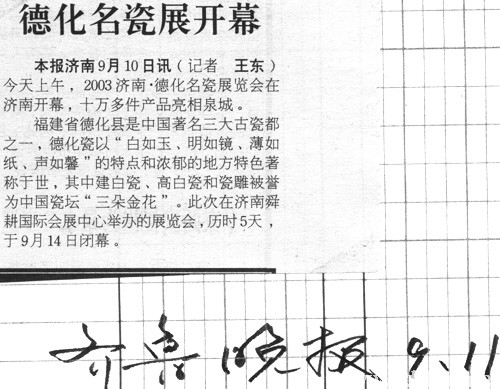 德化名瓷展开幕
本报济南9月10日讯(记者 王东)
今天上午，2003济南·德化名瓷展览会在
济南开幕，十万多件产品亮相泉城。
福建省德化县是中国著名三大古瓷都
之一，德化瓷以“白如玉、明如镜、薄如
纸、声如馨”的特点和浓郁的地方特色著
称于世，其中建白瓷、高白瓷和瓷雕被誉
为中国瓷坛“三朵金花”。此次在济南舜
耕国际会展中心举办的展览会，历时5天，
于9月14日闭幕。
齐鲁晚报 9.11